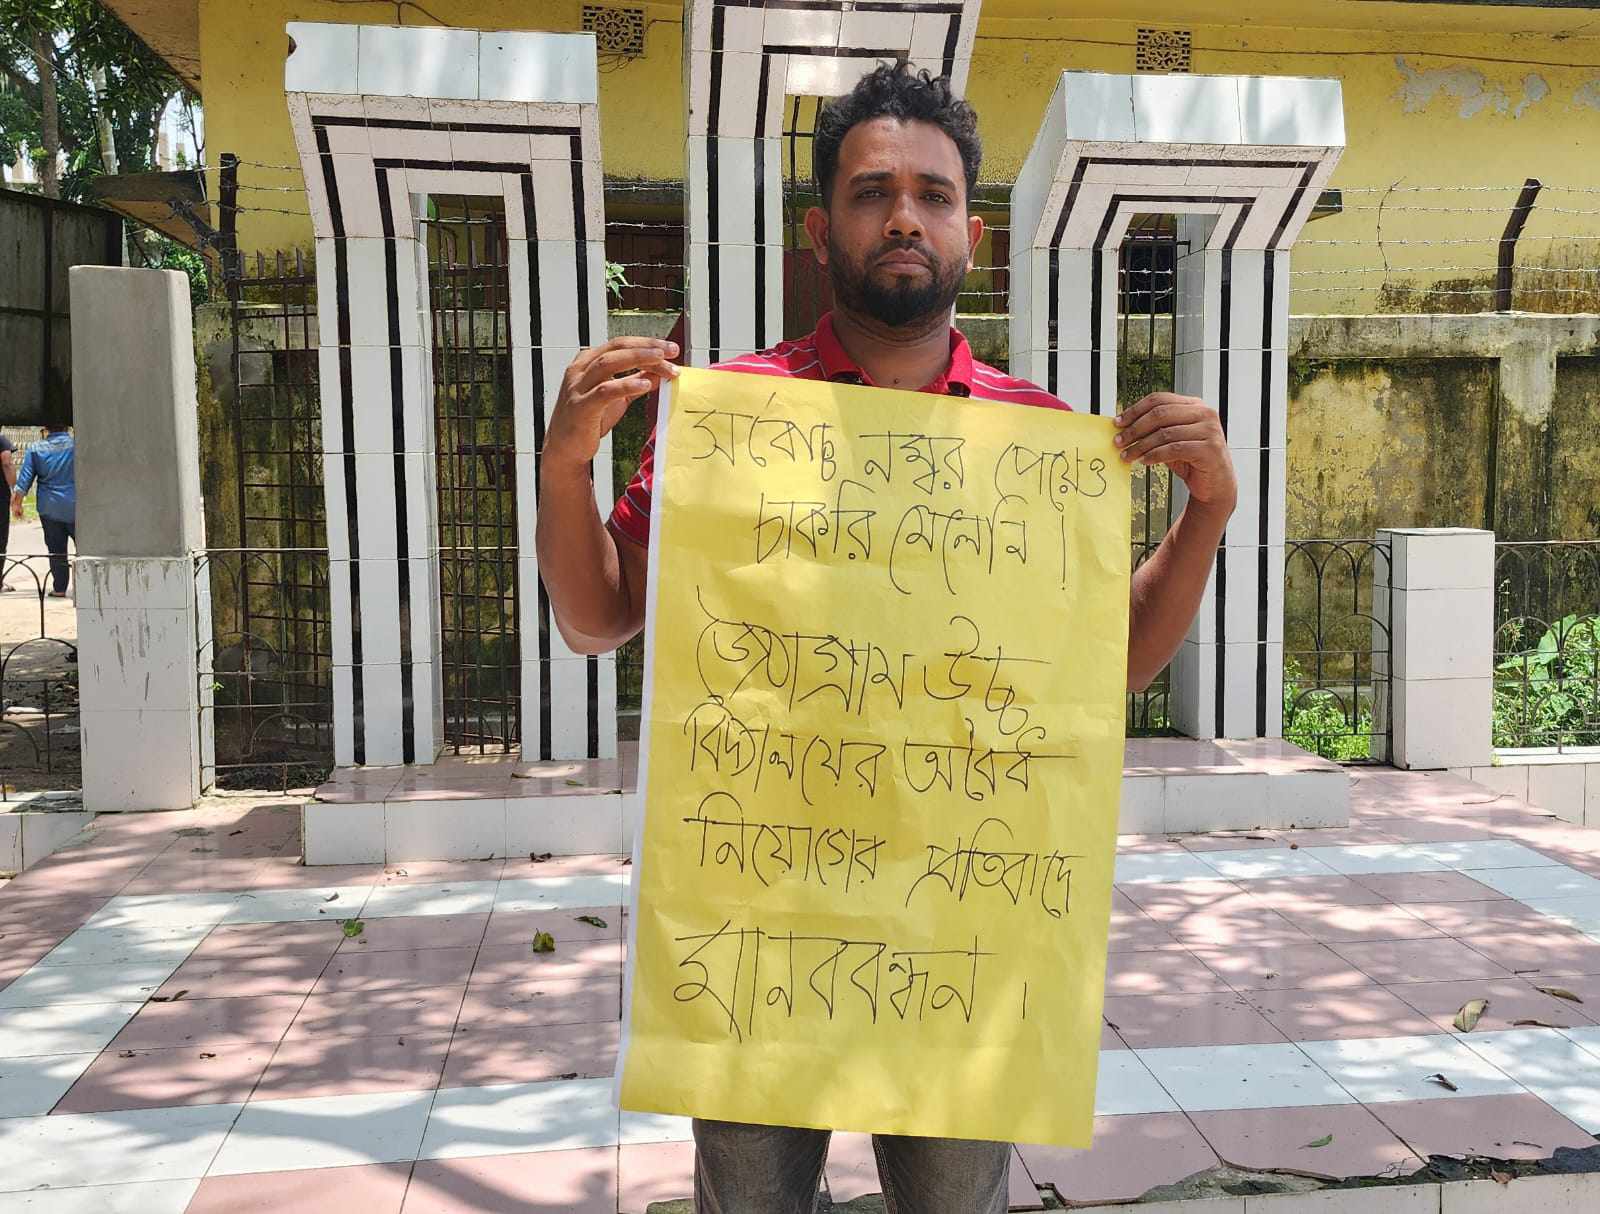 সর্বোচ্চ নম্বর পেয়েও
চাকরি মেলেনি।
জৈষ্ঠ্যগ্রাম উচ্চ
বিদ্যালয়ের অবৈধ
নিয়োগের প্রতিবাদে
মানববন্ধন।